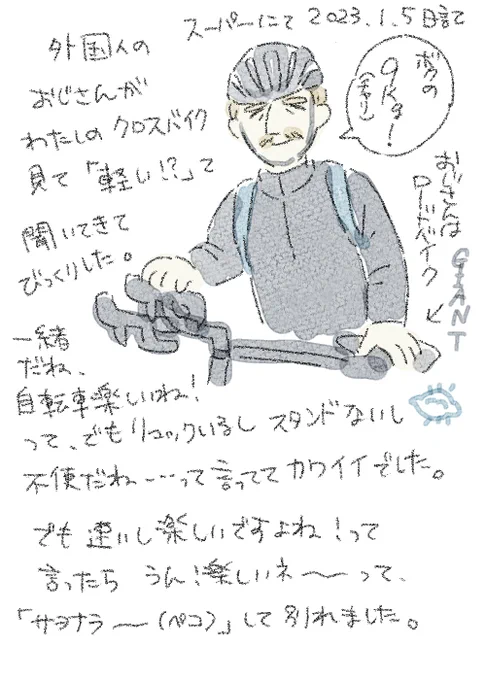 スーパーにて 2023.1.5日記て
外国人の
おじさんが
わたしの クロスバイク
見て「軽い!?」て
聞いてきて
びっくりした。
ボクの
9kg!
おじさんは
ロードバイク
GIANT
一緒
だね、
自転車楽しいね!
って、でもリュックいるし スタンドないし
不便だね…って言ってて カワイイでした。
でも 速いし楽しいですよね!って
言ったら うん!楽しいネ〜〜って、
「サヨナラ〜(ペコ)」して別れました。